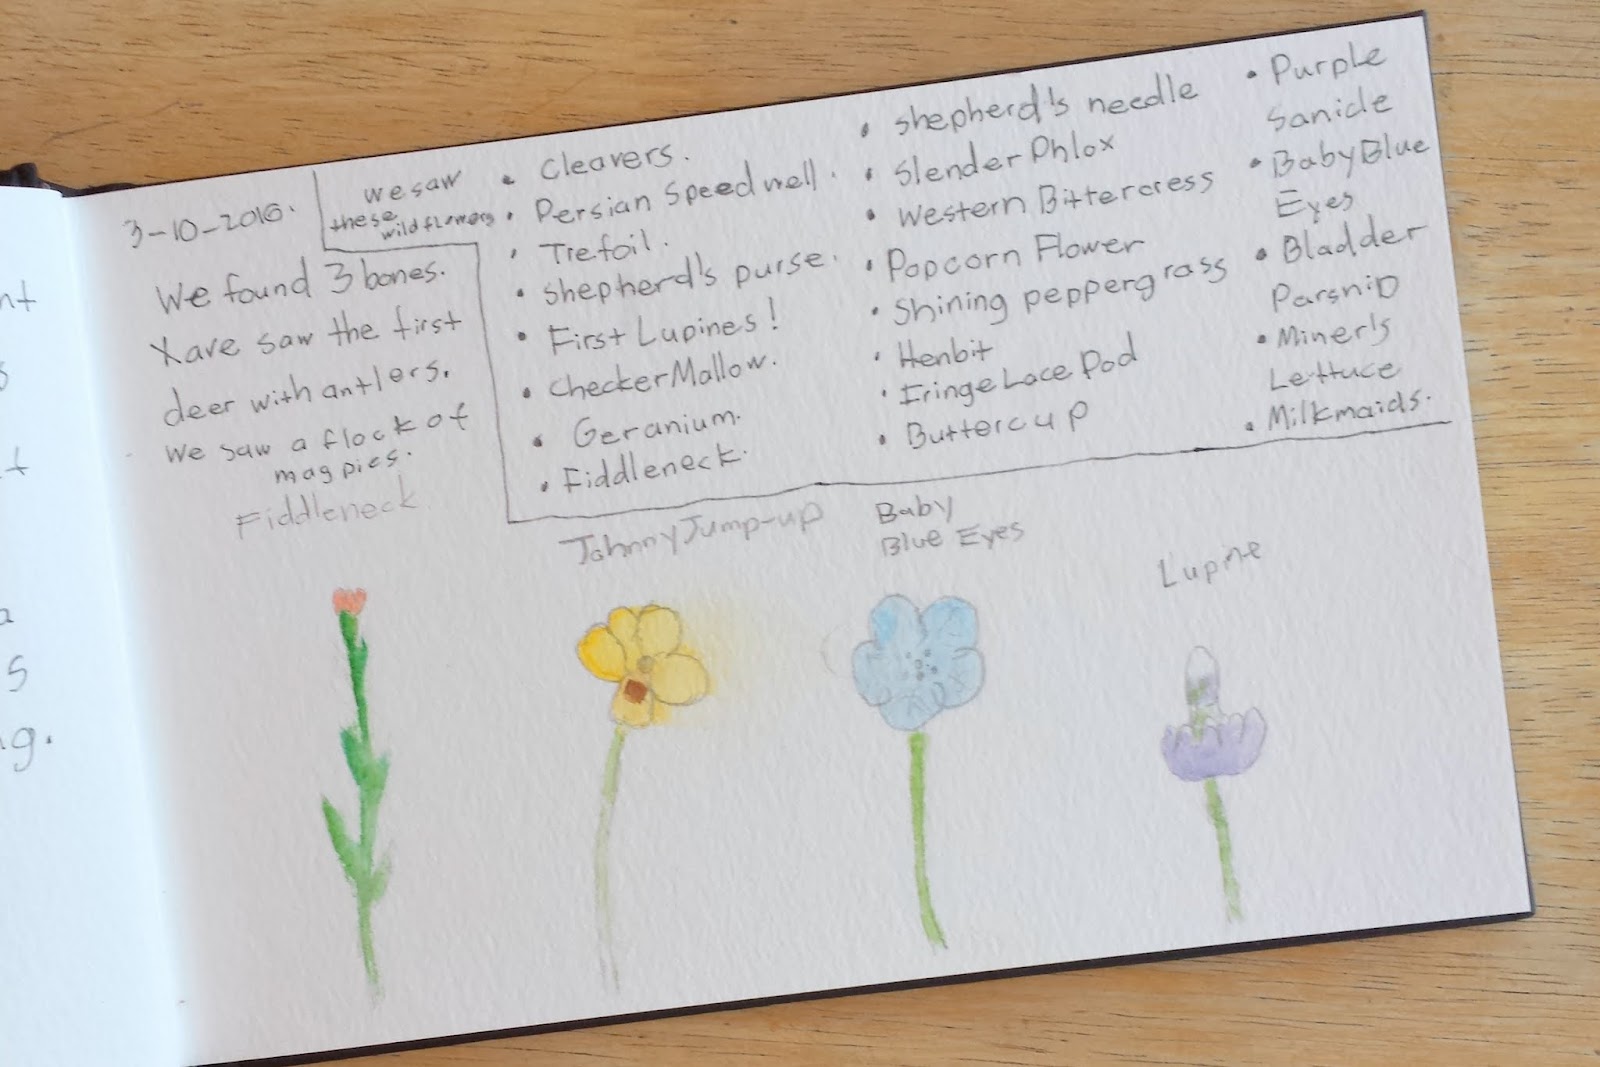 nt
s
t
a
s
ng.
3-10-2016.
We found 3 bones.
Xave saw the first
deer with antlers.
We saw a flock of
magpies.
we saw
these
wildflowers
• Cleavers.
• Persian Speedwell.
• Trefoil.
• Shepherd's purse.
• First Lupines!
• Checker Mallow.
• Geranium.
• Fiddleneck.
• Shepherd's needle
• Slender Phlox
• Western Bittercress
• Popcorn Flower
• Shining peppergrass
• Henbit
• Fringe Lace Pod
• Buttercup
• Purple
Sanicle
• Baby Blue
Eyes
• Bladder
Parsnip
• Miner's
Lettuce
• Milkmaids.
Fiddleneck
Johnny Jump-up
Baby
Blue Eyes
Lupine